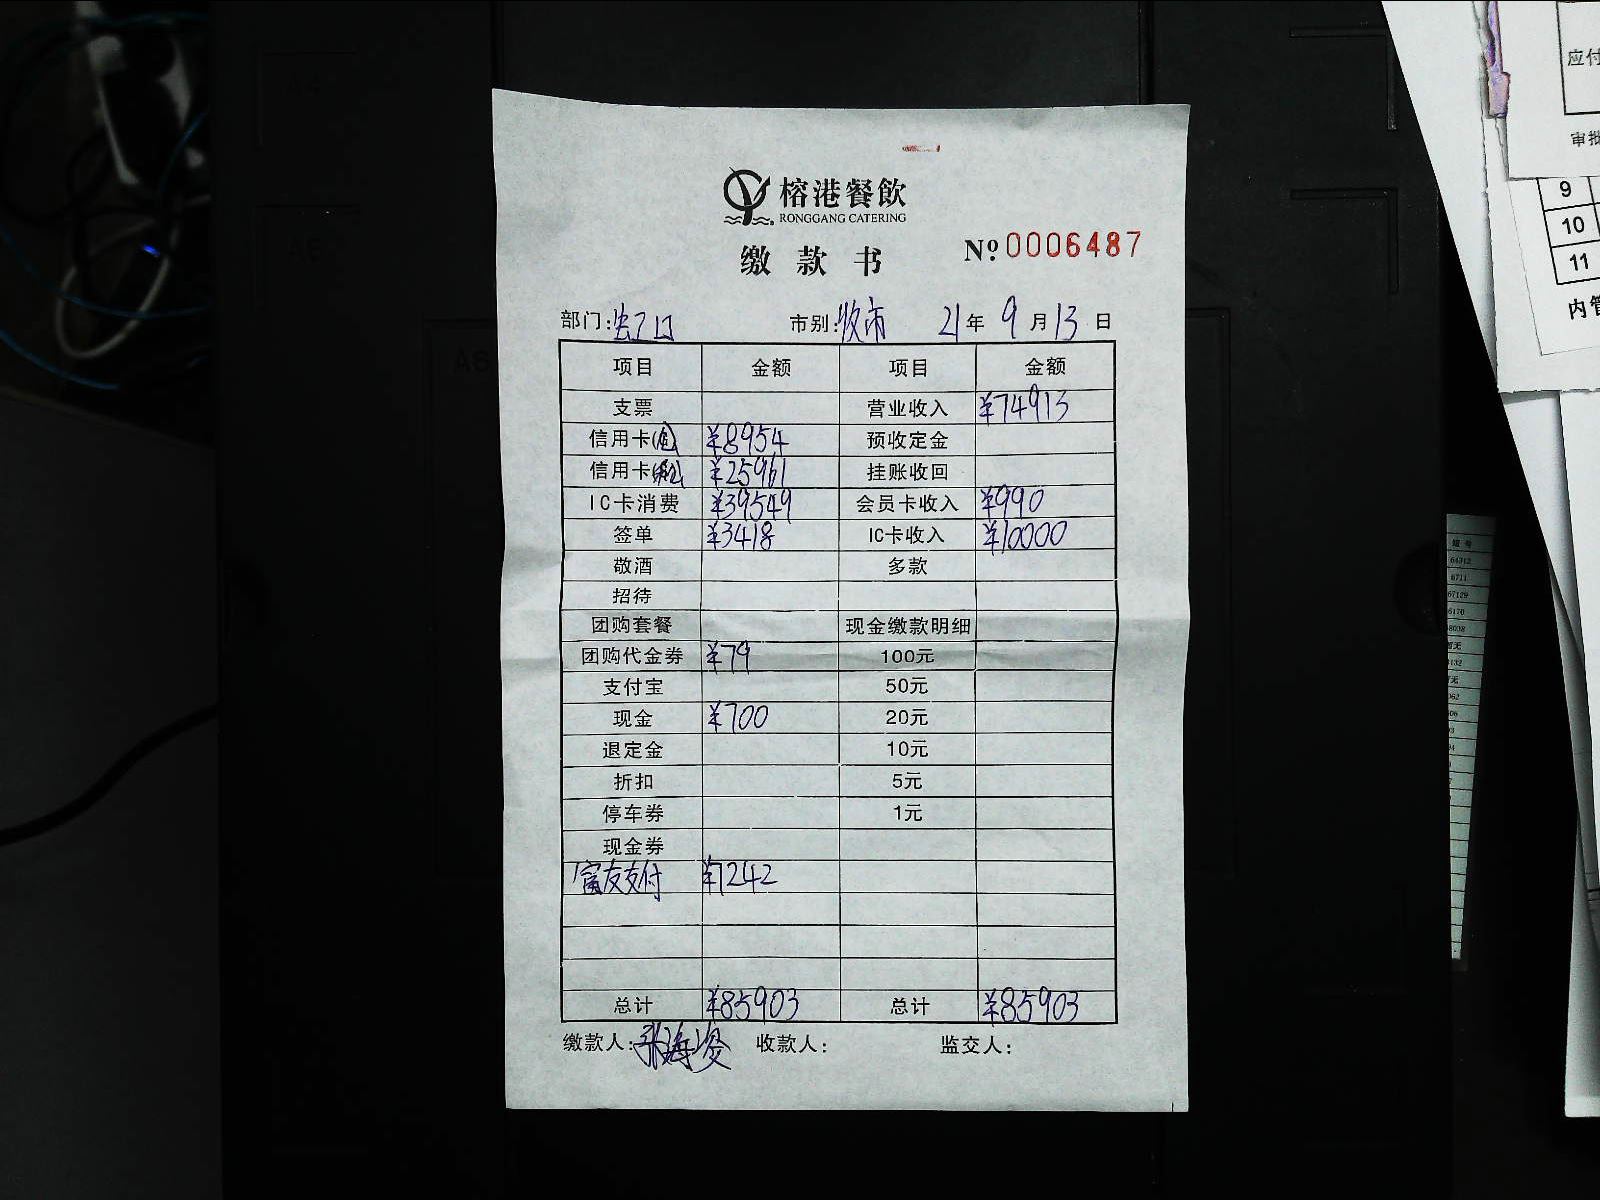 榕港餐飲
RONGGANG CATERING
缴款书 №0006487
部门: 市别:收市 21年9月13日
项目 金额 项目 金额
支票 营业收入 ¥74913
信用卡 ¥8954 预收定金
信用卡 ¥25961 挂账收回
IC卡消费 ¥39549 会员卡收入 ¥990
签单 ¥3418 IC卡收入 ¥10000
敬酒 多款
招待
团购套餐 现金缴款明细
团购代金券 ¥79 100元
支付宝 50元
现金 ¥700 20元
退定金 10元
折扣 5元
停车券 1元
现金券
富友支付 ¥7242
总计 ¥85903 总计 ¥85903
缴款人:张海 收款人: 监交人:
应付
审批
9
10
11
内管